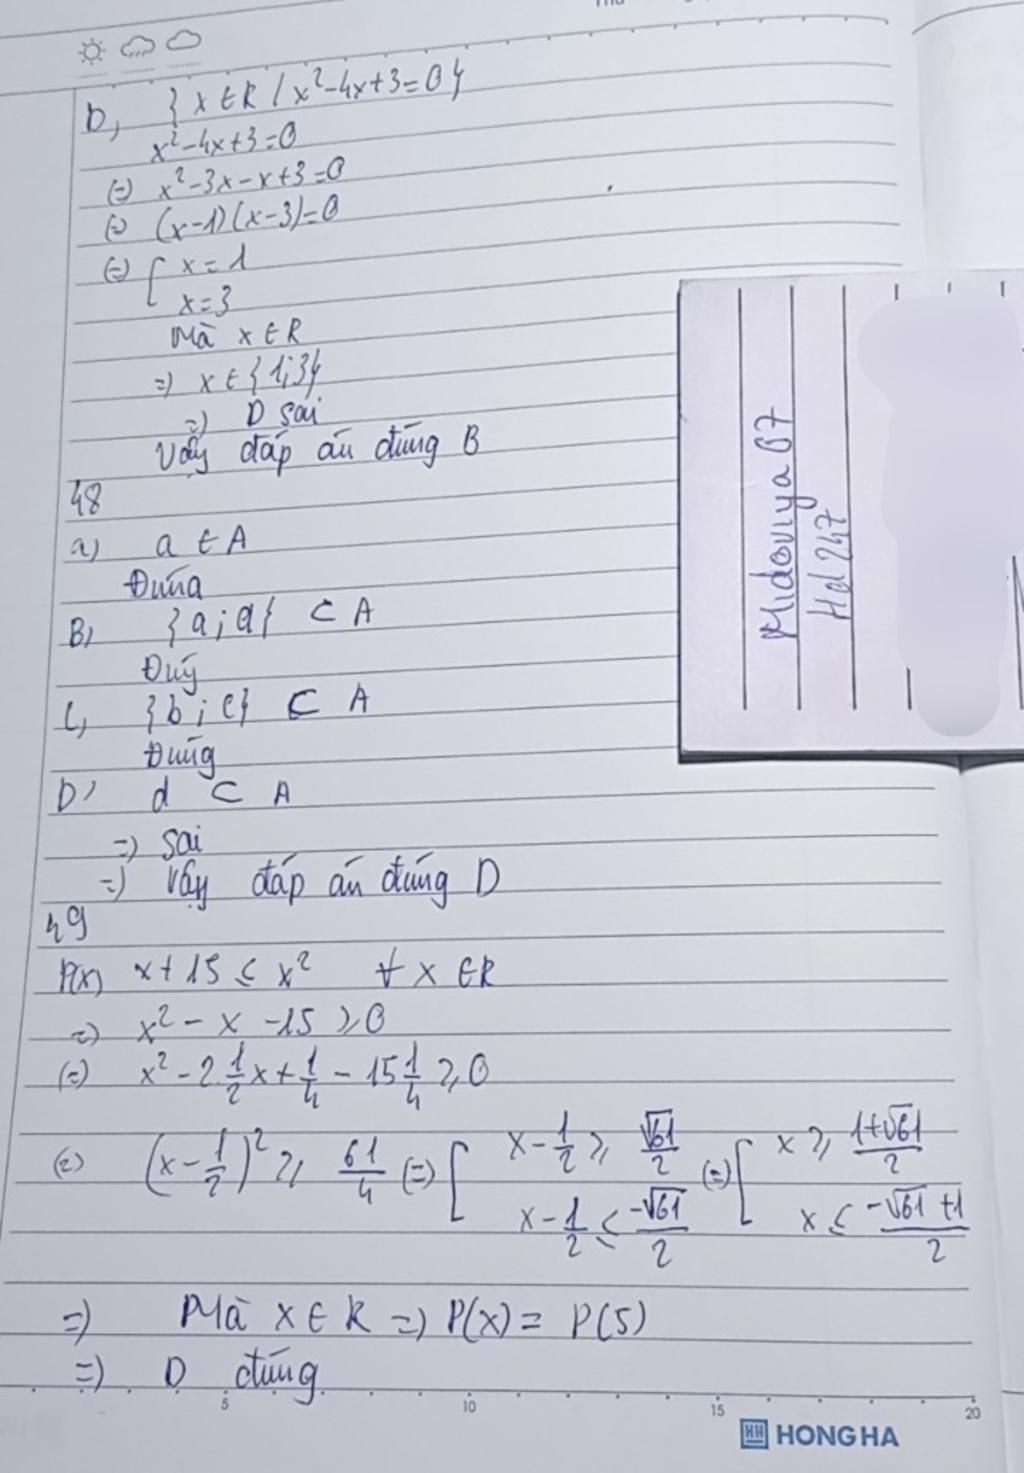 D, { x ∈ R / x²-4x+3=0}
x²-4x+3=0
(=) x²-3x-x+3=0
(=) (x-1)(x-3)=0
(=) [ x=1
x=3
Mà x ∈ R
=) x ∈ {1;3}
=) D sai
Vậy đáp án đúng B
48
a) a ∈ A
Đúng
B) {a;d} ⊂ A
Đúng
C, {b;c} ⊂ A
Đúng
D) d ⊂ A
=) sai
=) Vậy đáp án đúng D
49
P(x) x+15 ≤ x² ∀ x ∈ R
=) x² - x -15 ≥ 0
(=) x² - 2.1/2x + 1/4 - 15 1/4 ≥ 0
(=) (x-1/2)² ≥ 61/4 (=) [ x-1/2 ≥ √61/2 (=) [ x ≥ 1+√61/2
x-1/2 ≤ -√61/2 x ≤ -√61+1/2
=) Mà x ∈ R =) P(x) = P(5)
=) D đúng
5 10 15 20
HH HONG HA
Midoviya 07
Hd 247